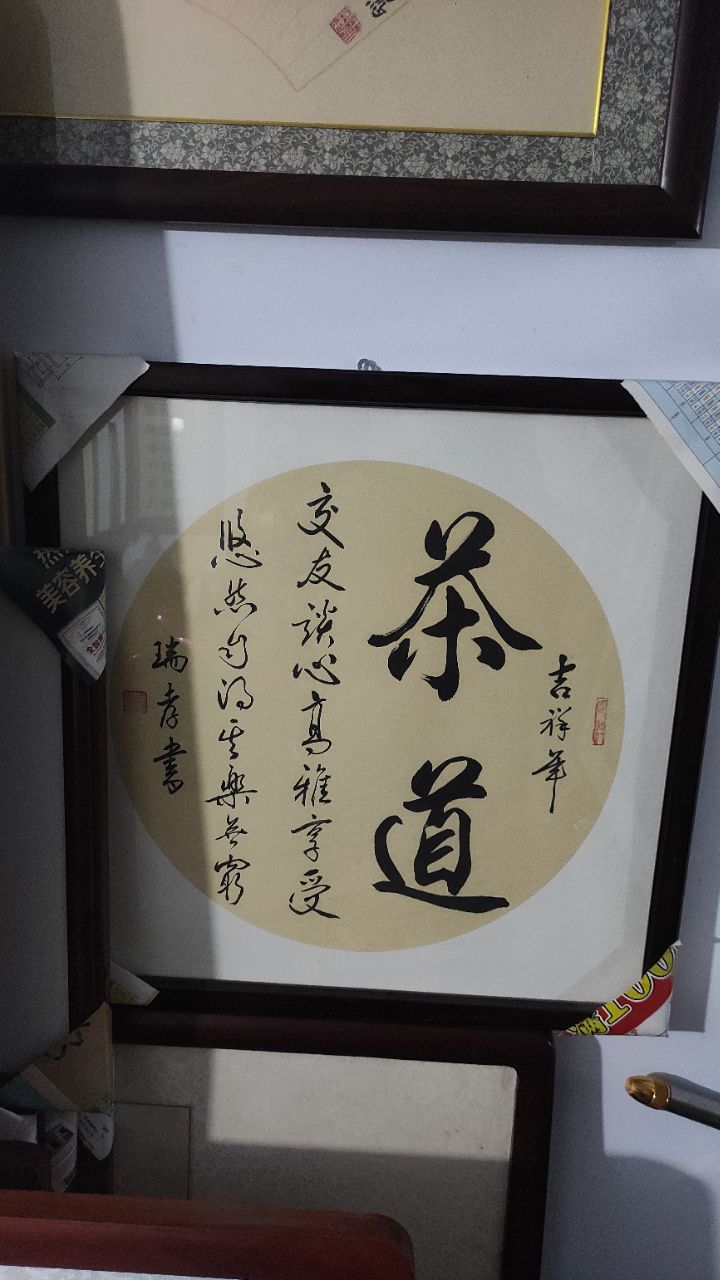 吉祥年
茶道
交友谈心高雅享受
悠然自得其樂無窮
瑞孝書
美容养
100